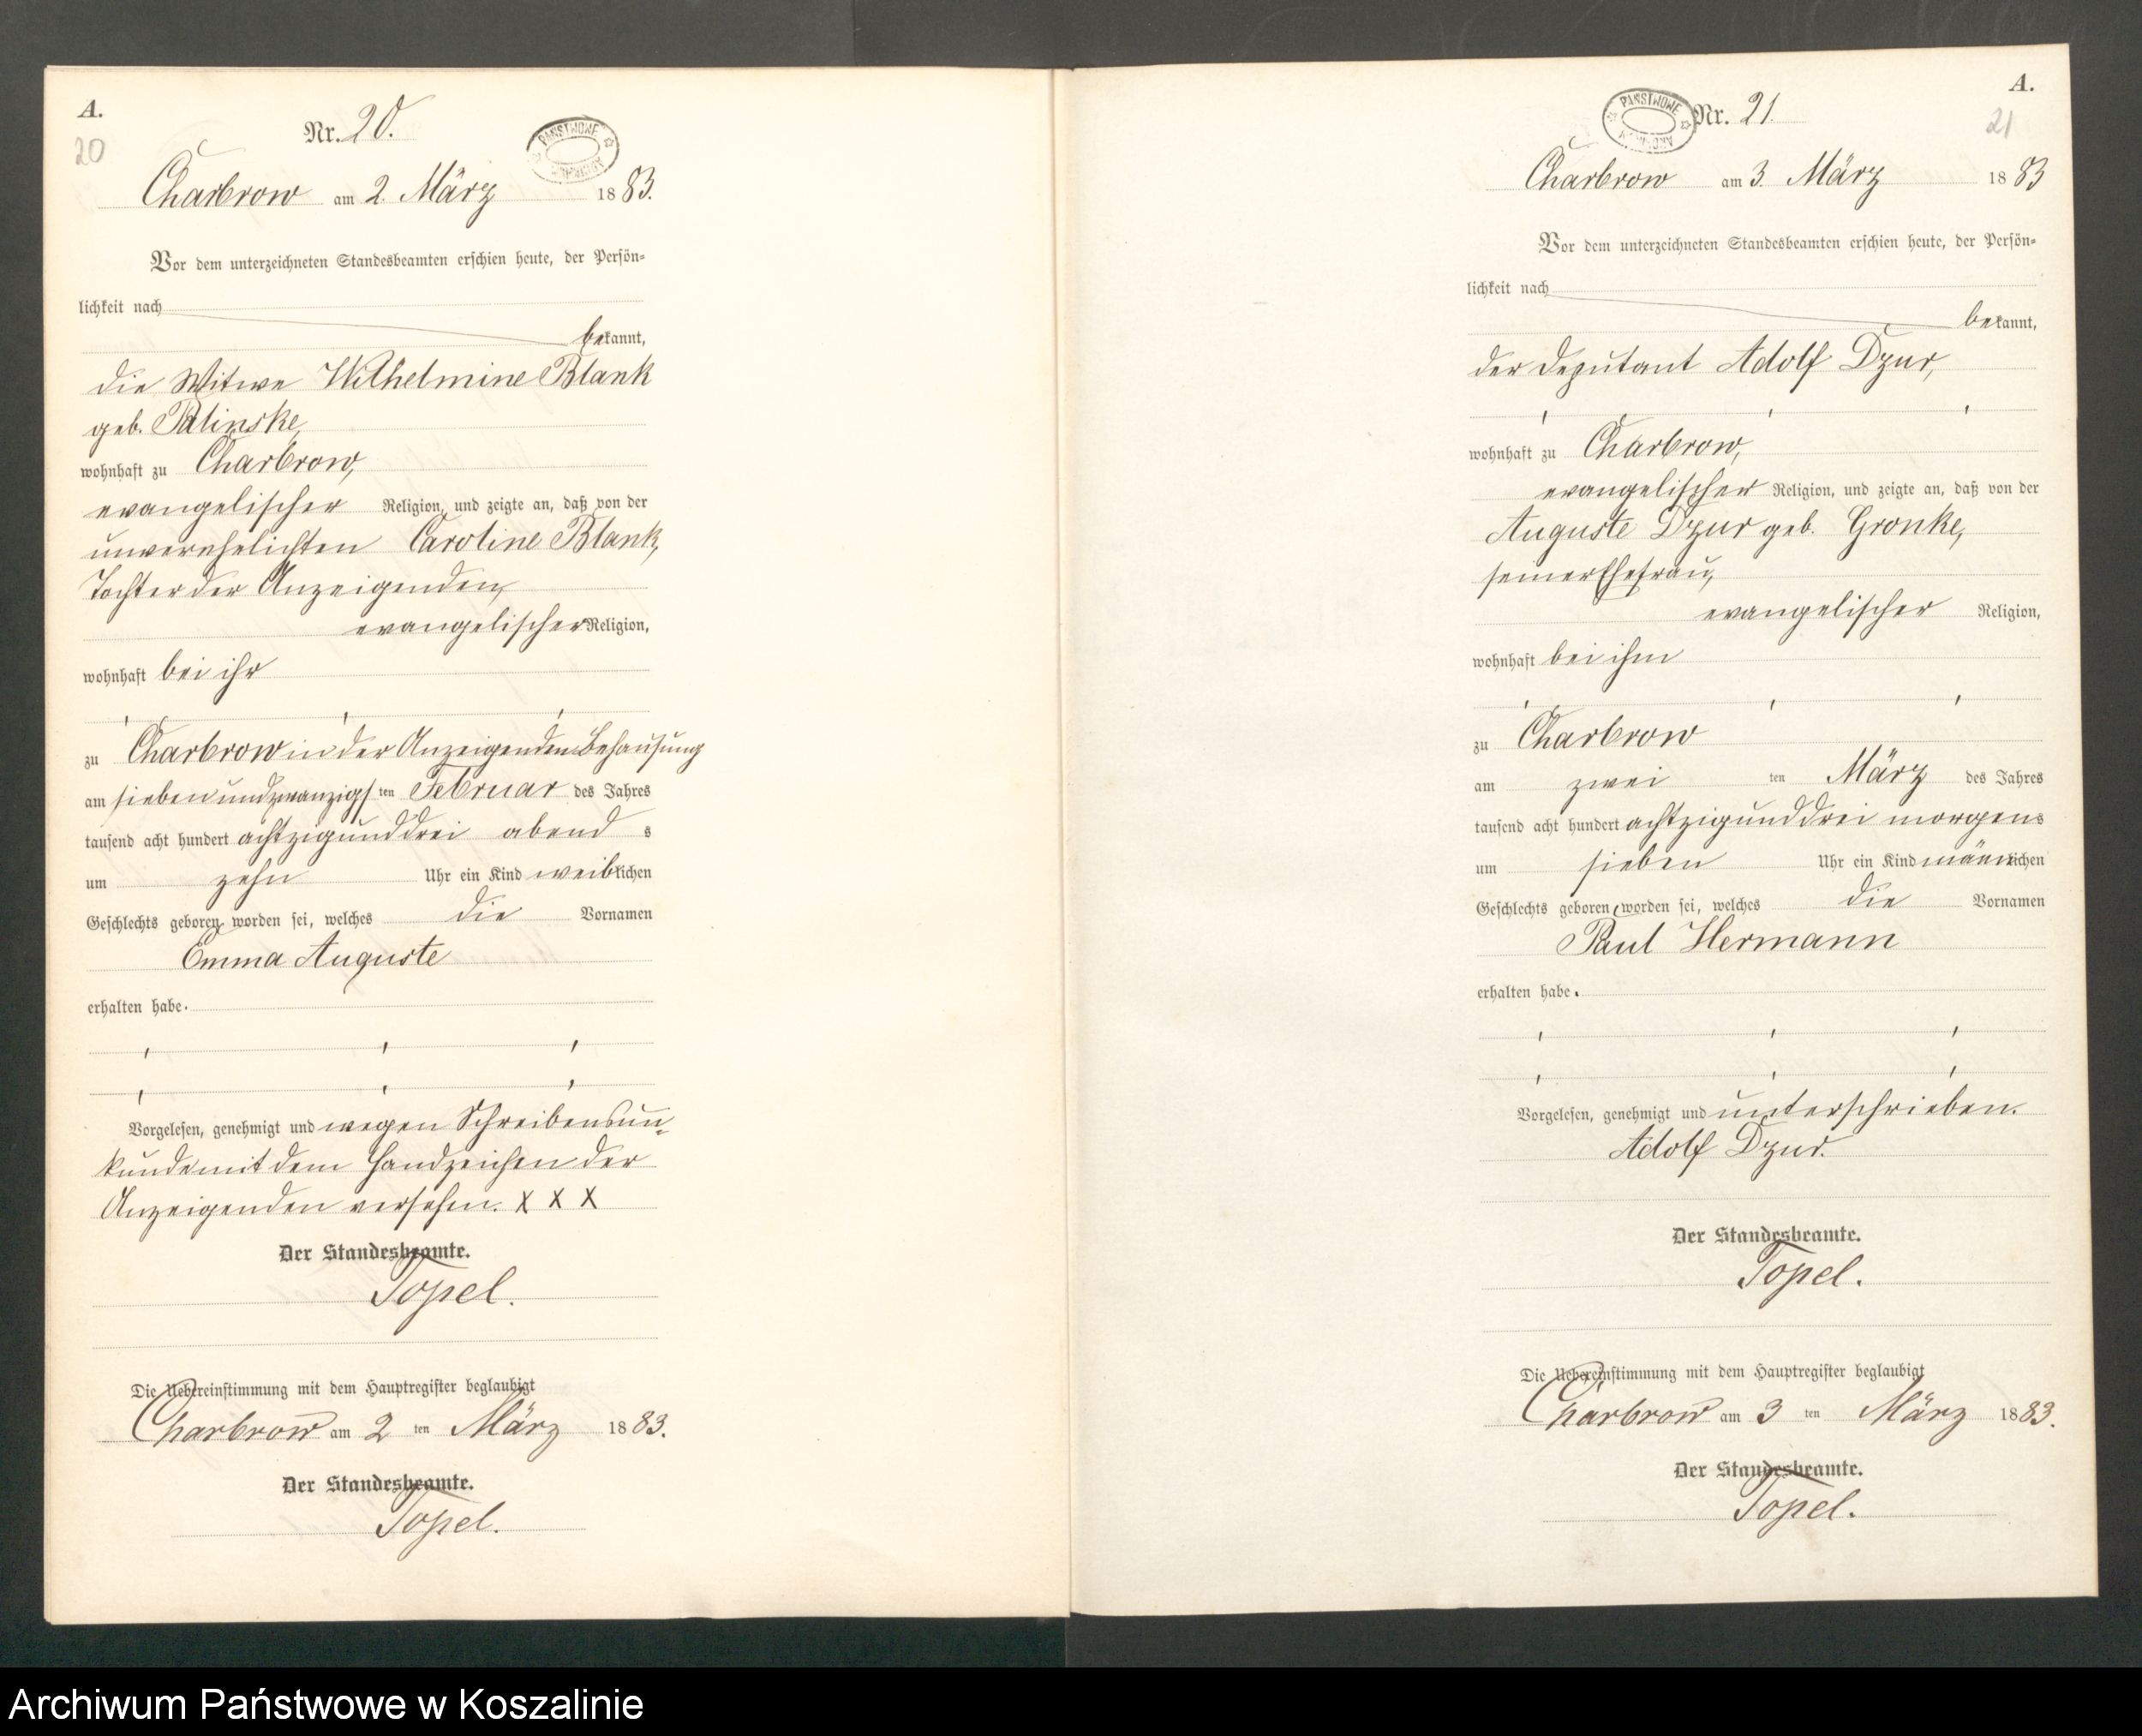 A.
20
Nr. 20.
PAŃSTWOWE ARCHIWUM
Charbrow am 2. März 1883.
Vor dem unterzeichneten Standesbeamten erschien heute, der Persön-
lichkeit nach
bekannt,
die Witwe Wilhelmine Blank
geb. Palinske,
wohnhaft zu Charbrow,
evangelischer Religion, und zeigte an, daß von der
unverehelichten Caroline Blank,
Tochter der Anzeigenden,
evangelischer Religion,
wohnhaft bei ihr
zu Charbrow in der Anzeigenden Behausung
am siebenundzwanzigsten Februar des Jahres
tausend acht hundert achtzigunddrei abends
um zehn Uhr ein Kind weiblichen
Geschlechts geboren worden sei, welches die Vornamen
Emma Auguste
erhalten habe.
Vorgelesen, genehmigt und wegen Schreibensun-
kunde mit dem Handzeichen der
Anzeigenden versehen. X X X
Der Standesbeamte.
Topel.
Die Uebereinstimmung mit dem Hauptregister beglaubigt
Charbrow am 2 ten März 1883.
Der Standesbeamte.
Topel.
A.
21
PAŃSTWOWE ARCHIWUM
Nr. 21.
Charbrow am 3. März 1883
Vor dem unterzeichneten Standesbeamten erschien heute, der Persön-
lichkeit nach
bekannt,
der Deputant Adolf Dzur,
wohnhaft zu Charbrow,
evangelischer Religion, und zeigte an, daß von der
Auguste Dzur geb. Gronke,
seiner Ehefrau,
evangelischer Religion,
wohnhaft bei ihm
zu Charbrow
am zwei ten März des Jahres
tausend acht hundert achtzigunddrei morgens
um sieben Uhr ein Kind männlichen
Geschlechts geboren worden sei, welches die Vornamen
Paul Hermann
erhalten habe.
Vorgelesen, genehmigt und unterschrieben.
Adolf Dzur.
Der Standesbeamte.
Topel.
Die Uebereinstimmung mit dem Hauptregister beglaubigt
Charbrow am 3 ten März 1883.
Der Standesbeamte.
Topel.
Archiwum Państwowe w Koszalinie